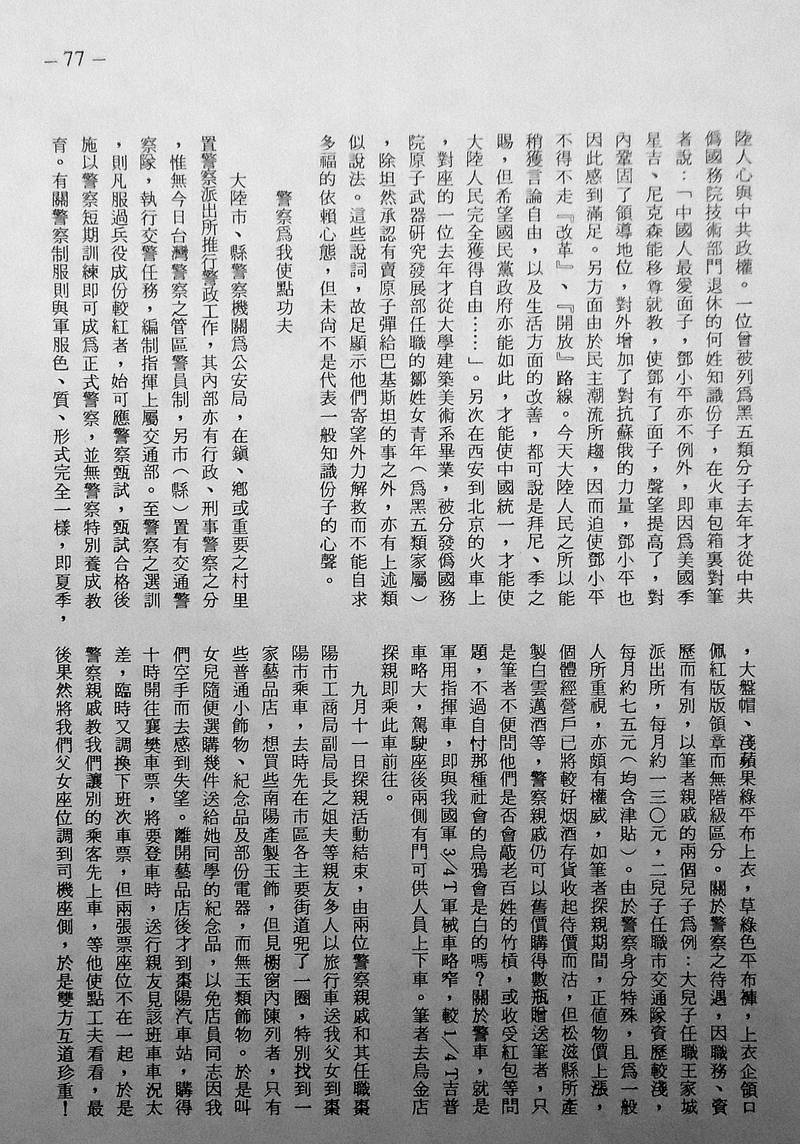 — 77 —
陸人心與中共政權。一位曾被列爲黑五類分子去年才從中共
僞國務院技術部門退休的何姓知識份子，在火車包箱裏對筆
者說：「中國人最愛面子，鄧小平亦不例外，即因爲美國季
星吉、尼克森能移尊就教，使鄧有了面子，聲望提高了，對
內鞏固了領導地位，對外增加了對抗蘇俄的力量，鄧小平也
因此感到滿足。另方面由於民主潮流所趨，因而迫使鄧小平
不得不走『改革』、『開放』路線。今天大陸人民之所以能
稍獲言論自由，以及生活方面的改善，都可說是拜尼、季之
賜，但希望國民黨政府亦能如此，才能使中國統一，才能使
大陸人民完全獲得自由……」。另次在西安到北京的火車上
，對座的一位去年才從大學建築美術系畢業，被分發僞國務
院原子武器研究發展部任職的鄒姓女青年（爲黑五類家屬）
，除坦然承認有賣原子彈給巴基斯坦的事之外，亦有上述類
似說法。這些說詞，故足顯示他們寄望外力解救而不能自求
多福的依賴心態，但未尚不是代表一般知識份子的心聲。
警察爲我使點功夫
大陸市、縣警察機關爲公安局，在鎭、鄉或重要之村里
置警察派出所推行警政工作，其內部亦有行政、刑事警察之分
，惟無今日台灣警察之管區警員制，另市（縣）置有交通警
察隊，執行交警任務，編制指揮上屬交通部。至警察之選訓
，則凡服過兵役成份較紅者，始可應警察甄試，甄試合格後
施以警察短期訓練即可成爲正式警察，並無警察特別養成教
育。有關警察制服則與軍服色、質、形式完全一樣，即夏季，
，大盤帽、淺蘋果綠平布上衣，草綠色平布褲，上衣企領口
佩紅版版領章而無階級區分。關於警察之待遇，因職務、資
歷而有別，以筆者親戚的兩個兒子爲例：大兒子任職王家城
派出所，每月約一三〇元，二兒子任職市交通隊資歷較淺，
每月約七五元（均含津貼）。由於警察身分特殊，且爲一般
人所重視，亦頗有權威，如筆者探親期間，正值物價上漲，
個體經營戶已將較好烟酒存貨收起待價而沽，但松滋縣所產
製白雲邁酒等，警察親戚仍可以舊價購得數瓶贈送筆者，只
是筆者不便問他們是否會敲老百姓的竹槓，或收受紅包等問
題，不過自忖那種社會的烏鴉會是白的嗎？關於警車，就是
軍用指揮車，即與我國軍3/4T軍械車略窄，較1/4T吉普
車略大，駕駛座後兩側有門可供人員上下車。筆者去烏金店
探親即乘此車前往。
九月十一日探親活動結束，由兩位警察親戚和其任職棗
陽市工商局副局長之姐夫等親友多人以旅行車送我父女到棗
陽市乘車，去時先在市區各主要街道兜了一圈，特別找到一
家藝品店，想買些南陽產製玉飾，但見櫥窗內陳列者，只有
些普通小飾物、紀念品及部份電器，而無玉類飾物。於是叫
女兒隨便選購幾件送給她同學的紀念品，以免店員同志因我
們空手而去感到失望。離開藝品店後才到棗陽汽車站，購得
十時開往襄樊車票，將要登車時，送行親友見該班車車況太
差，臨時又調換下班次車票，但兩張票座位不在一起，於是
警察親戚教我們讓別的乘客先上車，等他使點工夫看看，最
後果然將我們父女座位調到司機座側，於是雙方互道珍重！